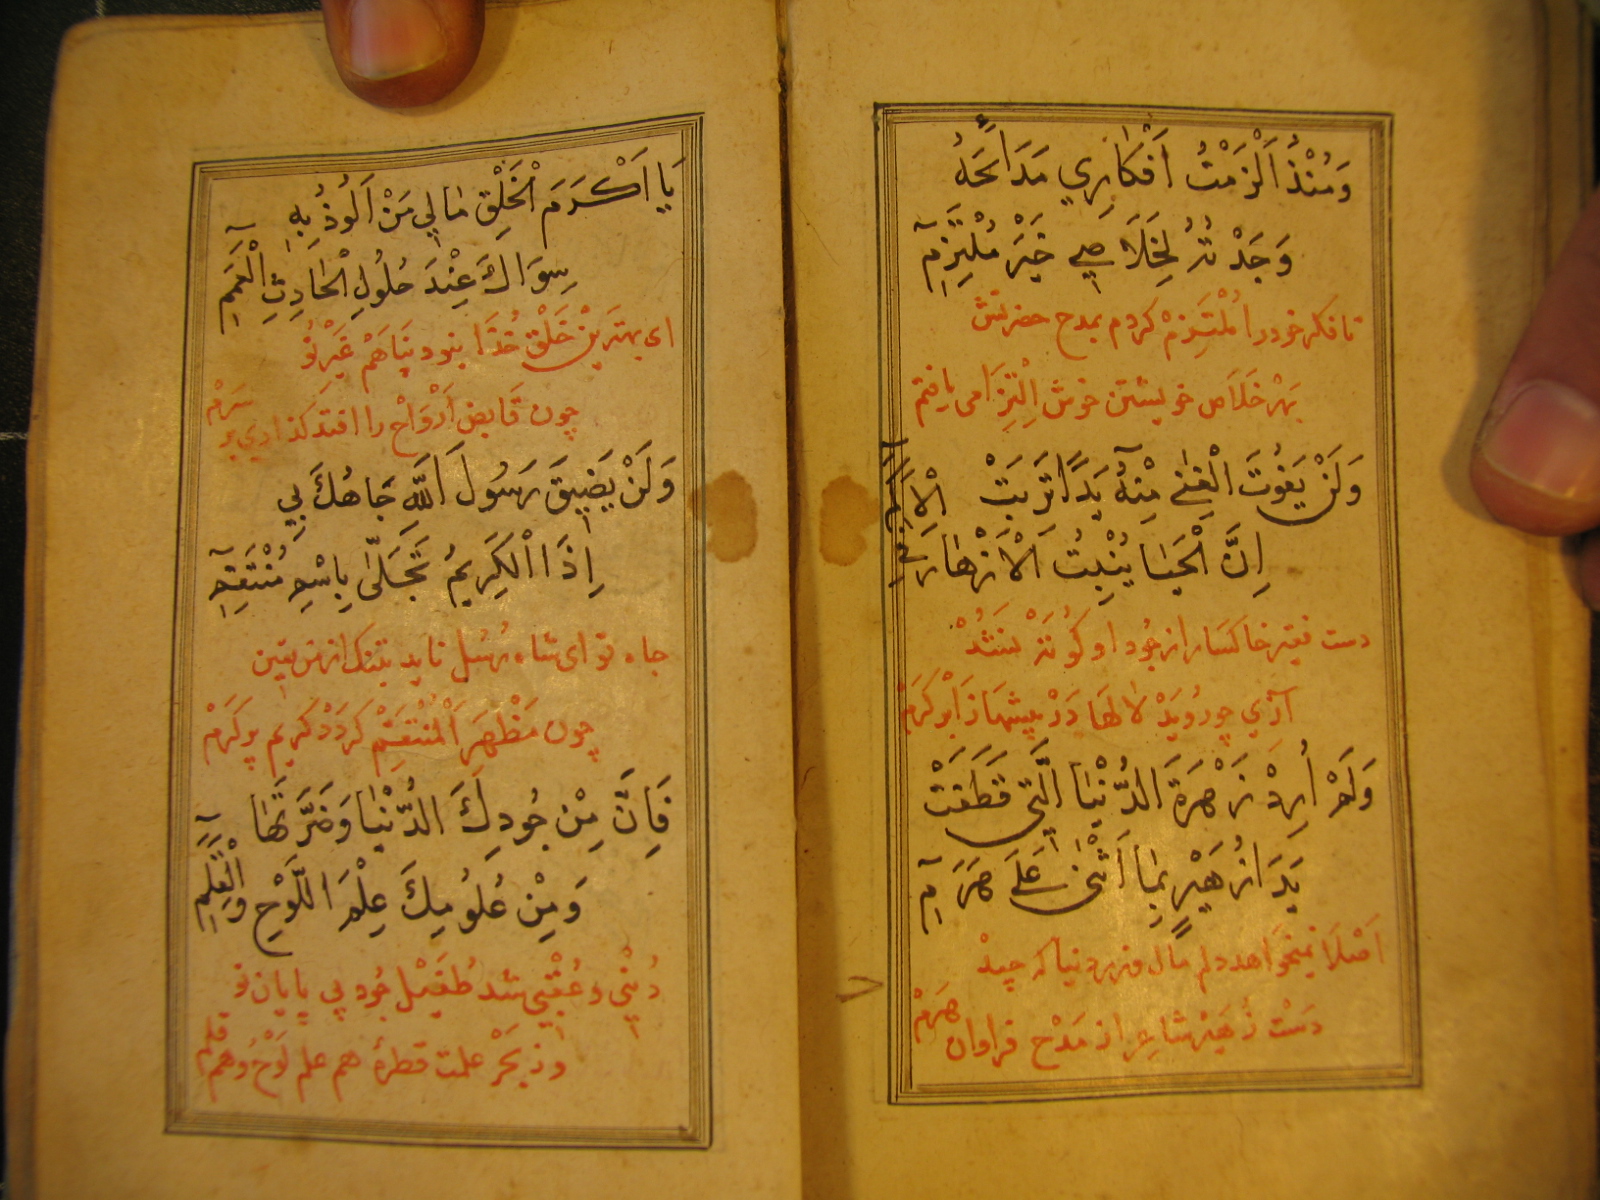 وَمُنْذُ اَلْزَمْتُ اَفْكَارِي مَدَائِحَهُ
وَجَدْتُهُ لِخَلَاصِي خَيْرَ مُلْتَزِمِ
تا فكر خود را مُلْتَزِمْ كردم بمدح حضرتش
بَهْرِ خَلَاصِ خويشتن خوش اِلْتِزَامى يافتم
وَلَنْ يَفُوتَ الْغِنٰى مِنْهُ يَدًا تَرِبَتْ
اِنَّ الْحَيَا يُنْبِتُ الْاَزْهَارَ فِي الْاَكَمِ
دست فقير خاكسار از جود او
آرى چو رويد لالها در
وَلَمْ اُرِدْ زَهْرَةَ الدُّنْيَا الَّتِي قَطَفَتْ
يَدَا زُهَيْرٍ بِمَا اَثْنٰى عَلٰى هَرَمِ
اَصْلَا نميخواهد دلم مال وزر دنيا كه چيد
دَسْت زُهَيْر شاعر از مَدْح فراوان هَرَمْ
يَا اَكْرَمَ الْخَلْقِ مَالِي مَنْ اَلُوذُ بِهِ
سِوَاكَ عِنْدَ حُلُولِ الْحَادِثِ الْعَمَمِ
اى بهترين خَلْقِ خُدَا نبود پَنَاهَمْ غَيْرِ تو
چون قابض اَرْوَاحْ را افتد كذارى بر سَرَمْ
وَلَنْ يَضِيقَ رَسُولَ اللّٰهِ جَاهُكَ بِي
اِذَا الْكَرِيمُ تَجَلّٰى بِاسْمِ مُنْتَقِمِ
جاه تو اى شاه رُسُل نايد بتنك از من يقين
چون مَظْهَرِ اَلْمُنْتَقِمْ كَرْدَدْ كريم پر كَرَمْ
فَاِنَّ مِنْ جُودِكَ الدُّنْيَا وَضَرَّتَهَا
وَمِنْ عُلُومِكَ عِلْمَ اللَّوْحِ وَالْقَلَمِ
دُنْيى وعُقْبى شد طُفَيْل جود بى پايان تو
وز بَحْرِ علمت قطرۀ هم علم لَوْحُ وهم قلم